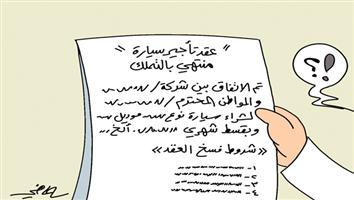 "عقد تأجير سيارة
منتهي بالتملك"
تم الاتفاق بين شركة/
والمواطن المحترم/
لشراء سيارة نوع موديل
وبقسط شهري .. الخ
«شروط فسخ العقد»
١ -
٢ -
٣ -
٤ -
؟!